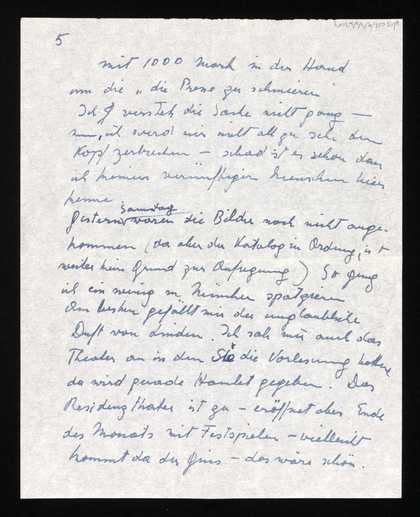 5
mit 1000 Mark in der Hand
um die „die Presse zu schmieren
Ich versteh die Sache nicht ganz –
nun, ich werd mir nicht allzu sehr den
Kopf zerbrechen – schad ist es schon dass
ich keinen vernünftigen Menschen hier
kenne
Samstag
Gestern waren die Bilder noch nicht ange-
kommen (da aber der Katalog in Ordnung, ist
weiter kein Grund zur Aufregung) So ging
ich ein wenig in München spazieren
Am besten gefällt mir der unglaubliche
Duft von Linden. Ich sah mir auch das
Theater an in dem Sie die Vorlesung hatten
da wird gerade Hamlet gegeben. Das
Residenztheater ist zu – eröffnet aber Ende
des Monats mit Festspielen – vielleicht
kommt da der – das wäre schön.